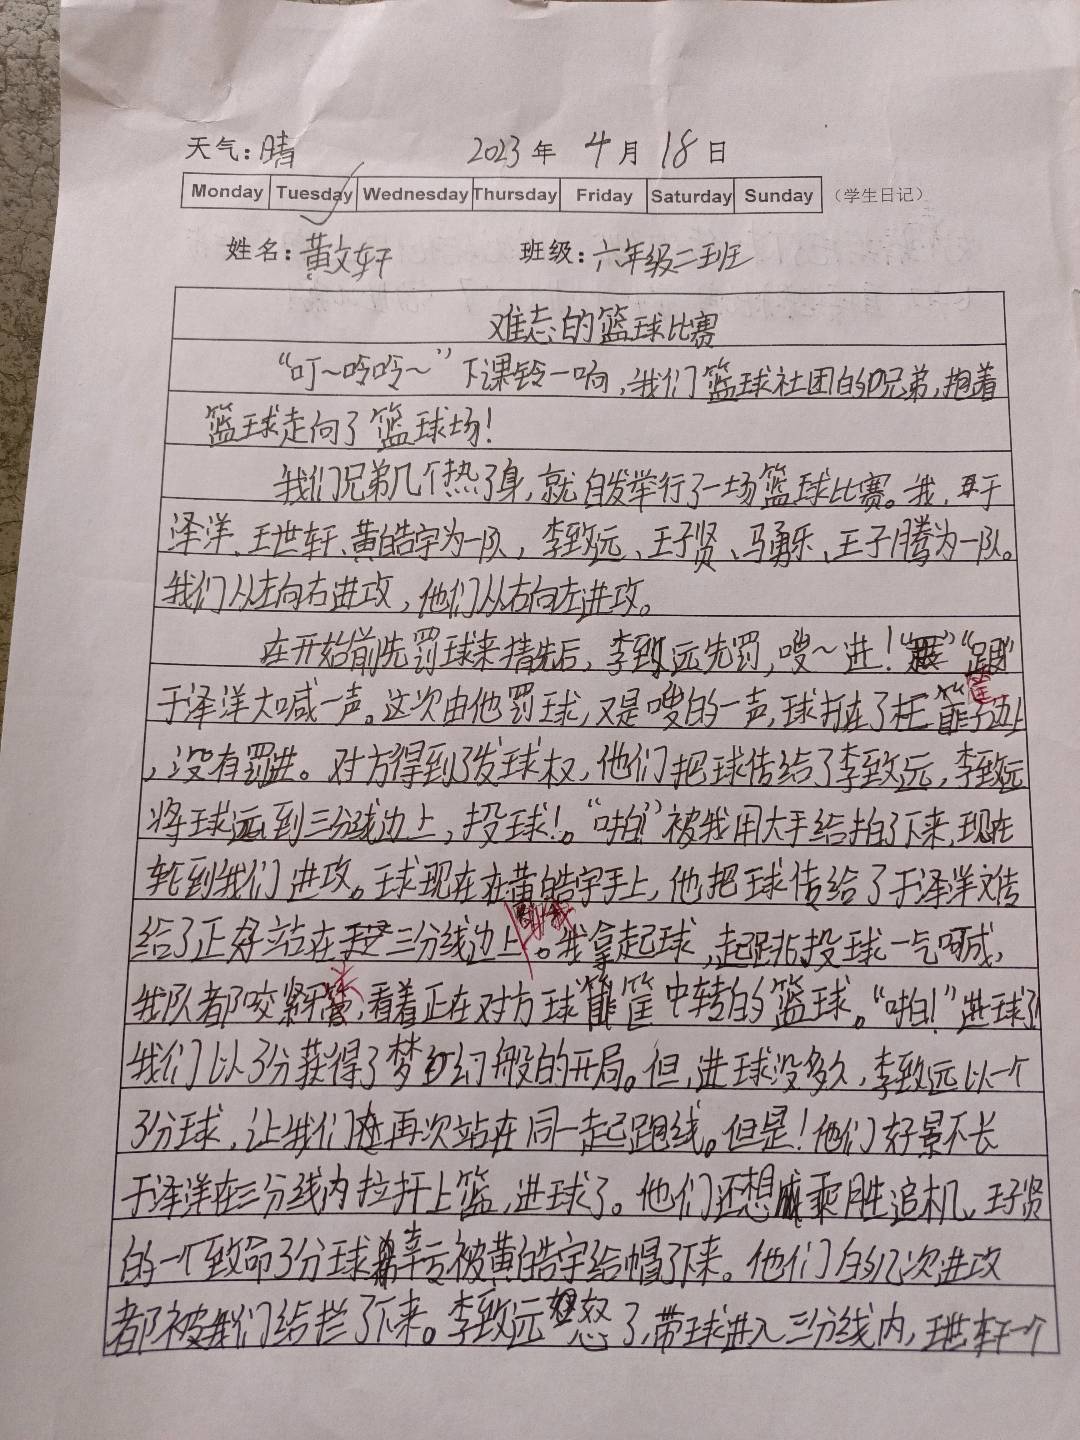 天气：晴 2023年 4月18日
Monday Tuesday Wednesday Thursday Friday Saturday Sunday （学生日记）
姓名：黄文轩 班级：六年级二班
难忘的篮球比赛
“叮～呤呤～”下课铃一响，我们篮球社团的兄弟，抱着
篮球走向了篮球场！
我们兄弟几个热了身，就自发举行了一场篮球比赛。我、于
泽洋、王世轩、黄皓宇为一队，李致远、王子贤、马勇乐、王子腾为一队。
我们从左向右进攻，他们从右向左进攻。
在开始前先罚球来猜先后，李致远先罚，嗖～进！
于泽洋大喊一声。这次由他罚球，又是嗖的一声，球打在了筐子边上
，没有罚进。对方得到了发球权，他们把球传给了李致远，李致远
将球运到三分线边上，投球！。“啪！”被我用大手给拍了下来，现在
轮到我们进攻。球现在在黄皓宇手上，他把球传给了于泽洋又传
给了正好站在三分线边上的我。我拿起球，起跳投球一气呵成，
我队都咬紧牙关，看着正在对方球筐中转的篮球。“啪！”进球了！
我们以3分获得了梦幻般的开局。但，进球没多久，李致远以一个
3分球，让我们再次站在同一起跑线。但是！他们好景不长
于泽洋在三分线内拉杆上篮，进球了。他们还想乘胜追机、王子贤
的一个致命3分球幸亏被黄皓宇给帽了下来。他们的几次进攻
都被我们给拦了下来。李致远怒了，带球进入三分线内，王世轩一个